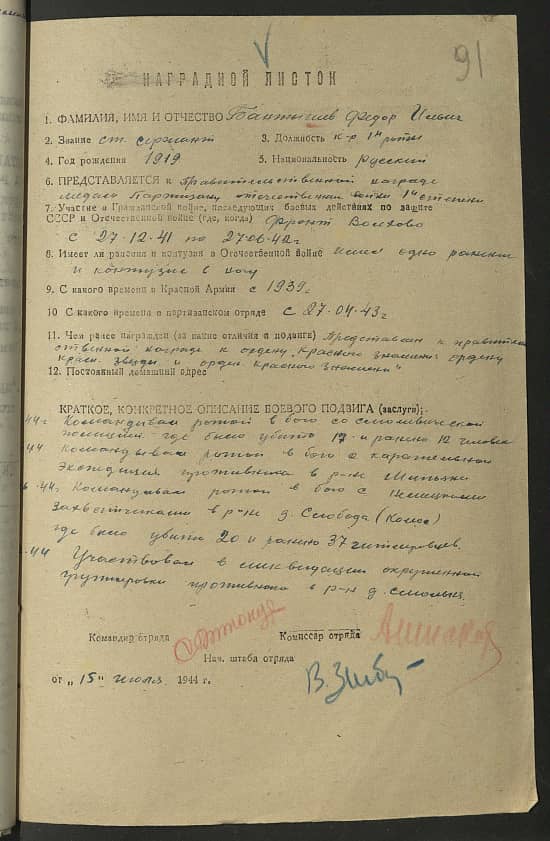 91
НАГРАДНОЙ ЛИСТОК
1. ФАМИЛИЯ, ИМЯ И ОТЧЕСТВО Федор Ильич
2. Звание ст. сержант 3. Должность к-р 1й роты
4. Год рождения 1919 5. Национальность Русский
6. ПРЕДСТАВЛЯЕТСЯ к Правительственной награде
медаль Партизану отечественной войны 1й степени
7. Участие в Гражданской войне, последующих боевых действиях по защите
СССР и Отечественной войне (где, когда) Фронт
с 27-12-41 по 27-06-42г
8. Имеет ли ранения и контузии в Отечественной войне одно ранение
и контузию в ногу
9. С какого времени в Красной Армии с 1939г
10 С какого времени в партизанском отряде с 27-04-43г
11. Чем ранее награжден (за какие отличия и подвиги) Представлен к правитель
ственной награде к ордену „Красного знамени" ордену
красн. звезды и орден. Красного знамени"
12. Постоянный домашний адрес
КРАТКОЕ, КОНКРЕТНОЕ ОПИСАНИЕ БОЕВОГО ПОДВИГА (заслуги):
44г Командывал ротой в бою со
полицией где было убито 17 и ранено 12 человек
44 Командывал ротой в бою с карательной
Экспедиция противника в р-не
44г Командывал ротой в бою с Немецкими
Захватчиками в р-не д. Слобода
где было убито 20 и ранено 37 гитлеровцев.
44 Участвовал в ликвидации окруженной
группировки противника в р-не д.
Командир отряда Комиссар отряда
Нач. штаба отряда
от „15" июля 1944 г.